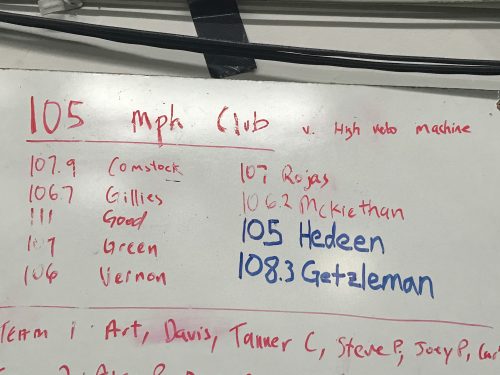 105 mph Club v. High velo machine
107.9 Comstock
106.7 Gillies
111 Good
107 Green
106 Vernon
107 Rojas
106.2 McKiethan
105 Hedeen
108.3 Getzleman
TEAM 1 Art, Davis, Tanner C, Steve P, Joey P,